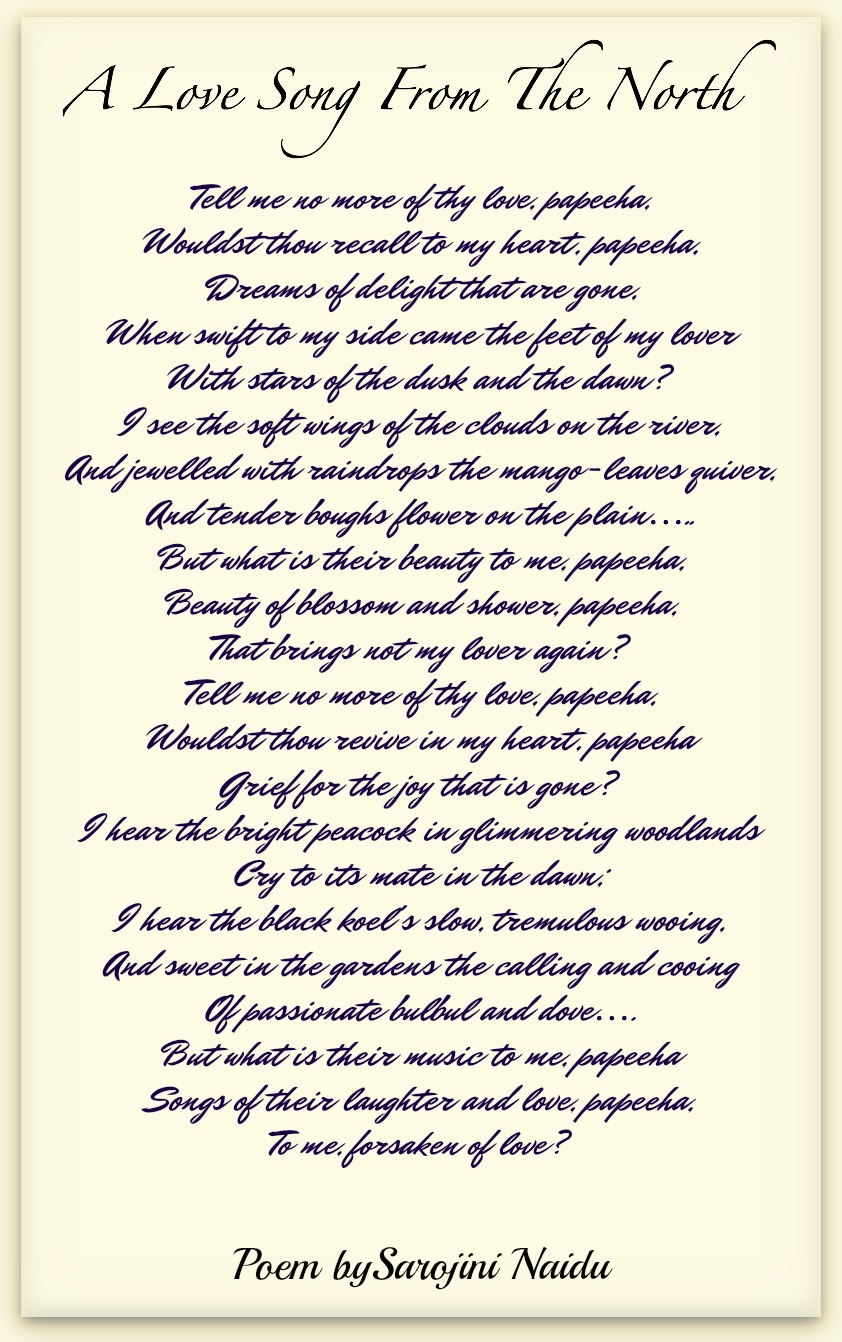 A Love Song From The North
Tell me no more of thy love, papeeha,
Wouldst thou recall to my heart, papeeha,
Dreams of delight that are gone,
When swift to my side came the feet of my lover
With stars of the dusk and the dawn?
I see the soft wings of the clouds on the river,
And jewelled with raindrops the mango-leaves quiver,
And tender boughs flower on the plain.....
But what is their beauty to me, papeeha,
Beauty of blossom and shower, papeeha,
That brings not my lover again?
Tell me no more of thy love, papeeha,
Wouldst thou revive in my heart, papeeha
Grief for the joy that is gone?
I hear the bright peacock in glimmering woodlands
Cry to its mate in the dawn;
I hear the black koel's slow, tremulous wooing,
And sweet in the gardens the calling and cooing
Of passionate bulbul and dove....
But what is their music to me, papeeha
Songs of their laughter and love, papeeha,
To me, forsaken of love?
Poem bySarojini Naidu